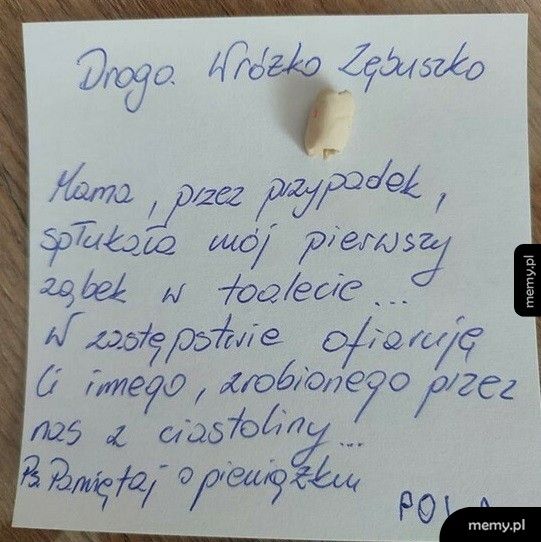 Droga Wróżko Zębuszko
Mama, przez przypadek,
spłukała mój pierwszy
ząbek w toalecie...
W zastępstwie ofiaruję
Ci innego, zrobionego przez
nas z ciastoliny...
Ps. Pamiętaj o pieniążku
memy.pl
memy.pl